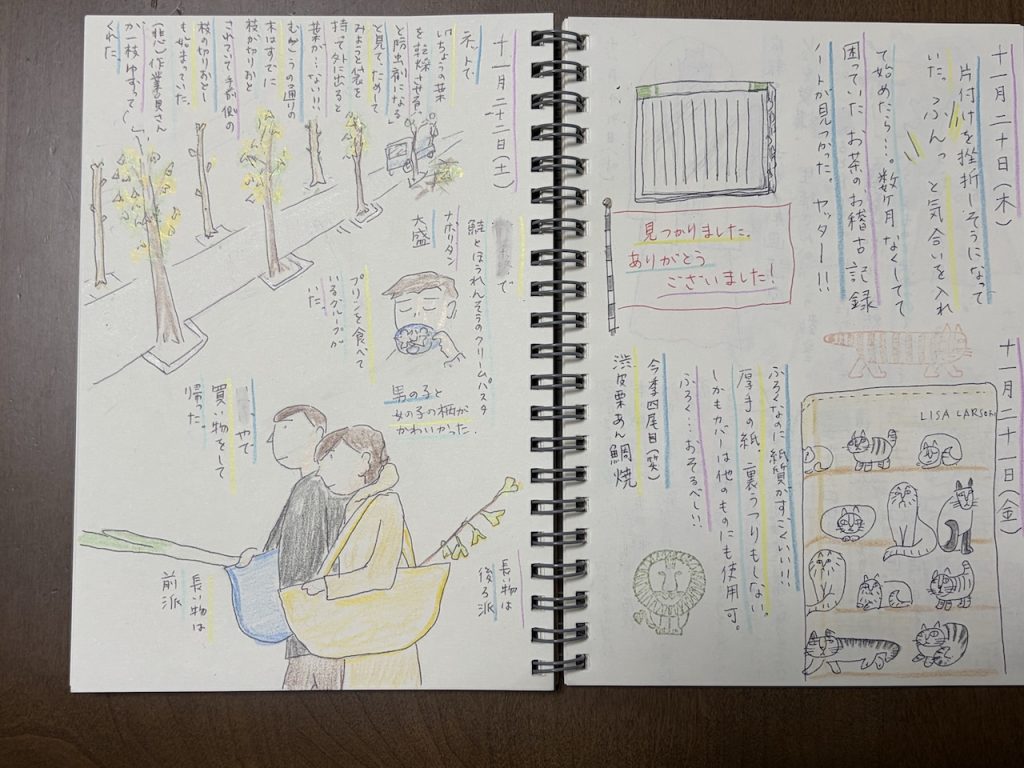 十一月二十日(木)
片付けを挫折しそうになって
いた。ふんっ と気合いを入れ
て始めたら…。数ヶ月なくしてて
困っていた お茶のお稽古記録
ノートが見つかった。ヤッター!!
見つかりました。
ありがとう
ございました!
十一月二十一日(金)
LISA LARSON
ふろくなのに紙質がすごくいい!!!
厚手の紙、裏うつりもしない。
しかもカバーは他のものにも使用可。
ふろく…おそるべし!!
今季四尾目(笑)
渋皮栗あん鯛焼
十一月二十二日(土)
ネットで
「いちょうの葉
を乾燥させる
と防虫剤になる」
と見て、ためして
みようと袋を
持って外に出ると
葉が…ない!!!
むこうの通りの
木はすでに
枝が切りおと
されていて手前側の
枝の切りおとし
も始まっていた。
(悲)作業員さん
が一枝ゆずって
くれた。
で
鮭とほうれんそうのクリームパスタ
ナポリタン
大盛
プリンを食べて
いるグループが
いた。
男の子と
女の子の柄が
かわいかった。
やで
買い物をして
帰った。
長い物は
後ろ派
長い物は
前派